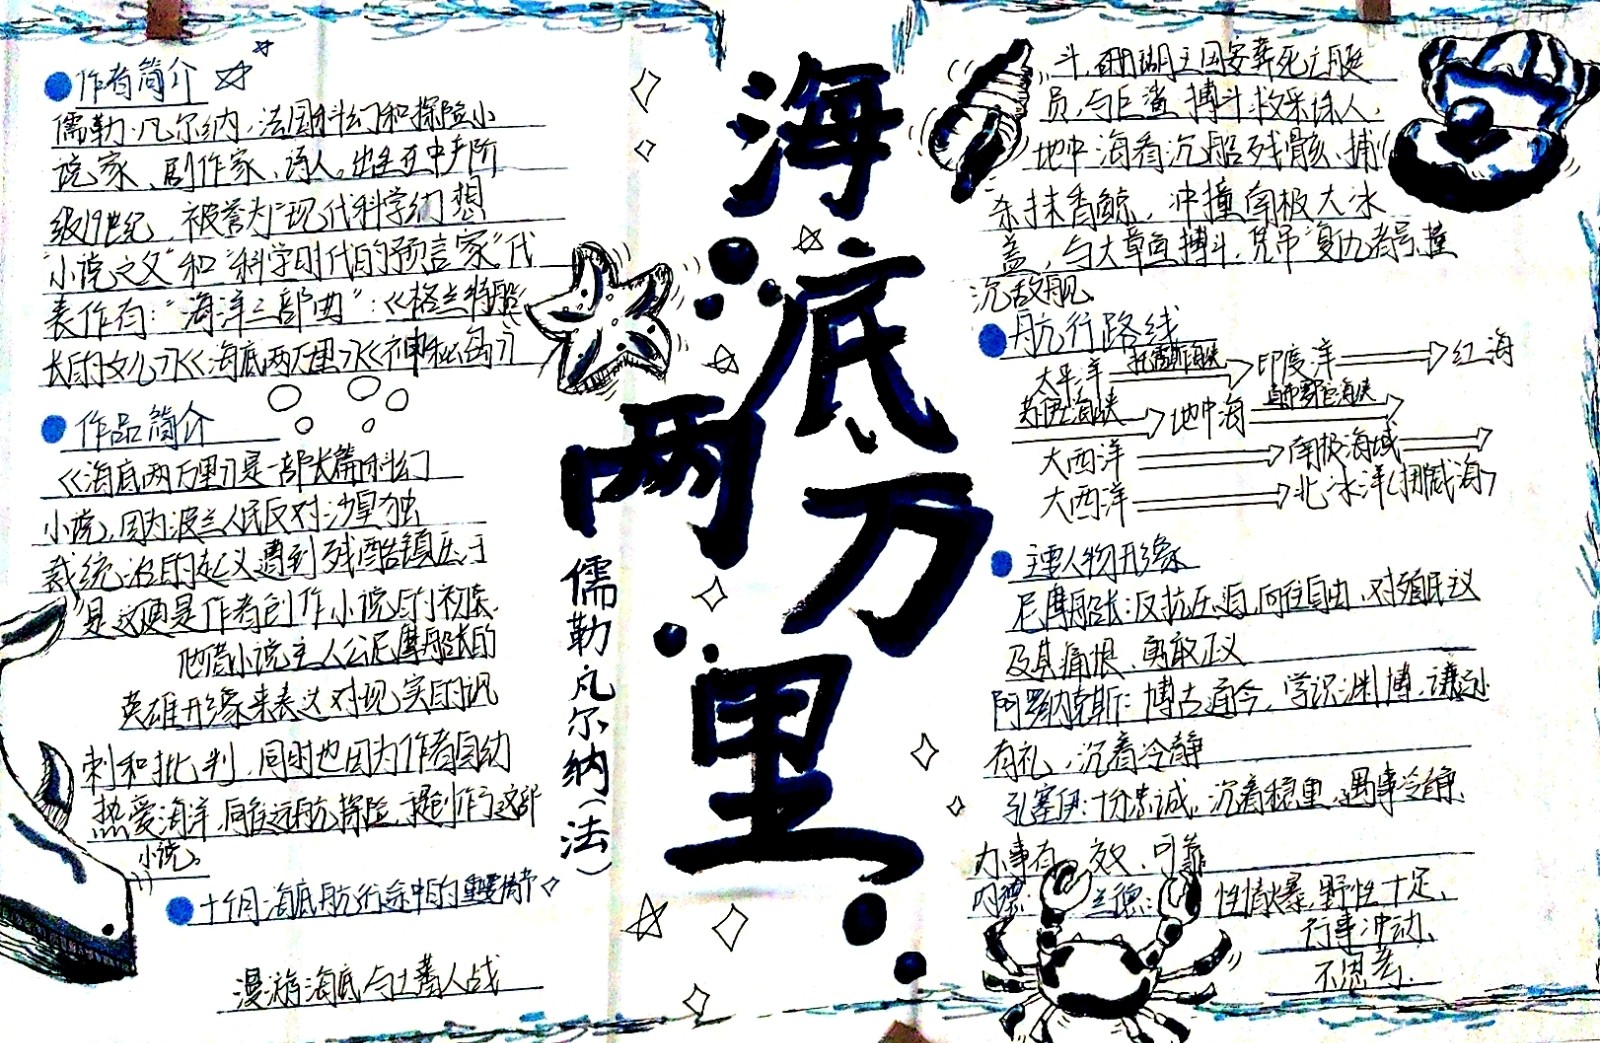 作者简介
儒勒·凡尔纳，法国科幻和探险小
说家、剧作家、诗人。出生在中产阶
级19世纪，被誉为"现代科学幻想
小说之父"和"科学时代的预言家"代
表作有："海洋三部曲"：《格兰特船
长的女儿》《海底两万里》《神秘岛》
作品简介
《海底两万里》是一部长篇科幻
小说，因为波兰人民反对沙皇独
裁统治的起义遭到残酷镇压，于
是这便是作者创作小说的初衷.
他借小说主人公尼摩船长的
英雄形象来表达对现实的讽
刺和批判，同时也因为作者自幼
热爱海洋，向往远航探险，创作了这部
小说。
十个月海底航行途中的重要情节
漫游海底，与土著人战
海底两万里
儒勒凡尔纳（法）
斗，珊瑚王国安葬死亡艇
员，与巨鲨搏斗救采珠人，
地中海看沉船残骸，捕
杀抹香鲸，冲撞南极大冰
盖，与大章鱼搏斗，凭吊"复仇者号"，撞
沉敌舰
航行路线
太平洋 托雷斯海峡 印度洋 红海
苏伊士海峡 地中海 直布罗陀海峡
大西洋 南极海域
大西洋 北冰洋（挪威海）
主要人物形象
尼摩船长：反抗压迫，向往自由，对殖民主义
及其痛恨、勇敢正义
阿罗纳克斯：博古通今，学识渊博，谦逊
有礼，沉着冷静
孔塞伊：十分忠诚，沉着稳重，遇事冷静、
办事有 效、可靠
内德 兰德： 性情火爆，野性十足、
行事冲动、
不思考.